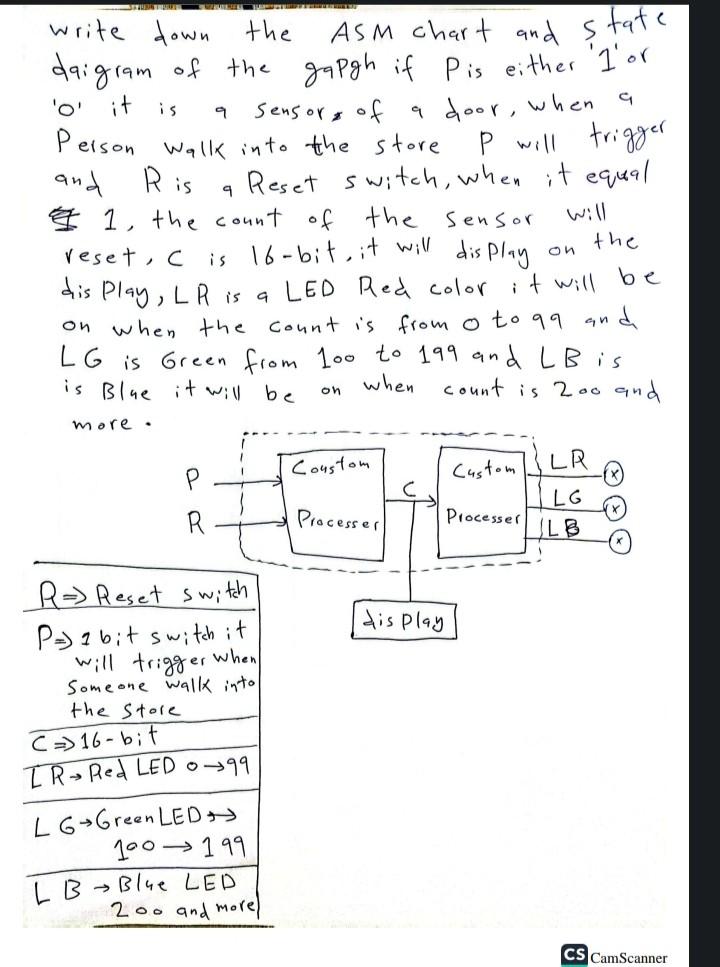 write down the ASM chart and state
daigram of the gapgh if P is either '1' or
'0' it is a sensor, of a door, when a
Person walk into the store P will trigger
and R is a Reset switch, when it equal
1, the count of the sensor will
reset, C is 16-bit, it will display on the
display, LR is a LED Red color it will be
on when the count is from 0 to 99 and
LG is Green from 100 to 199 and LB is
is Blue it will be on when count is 200 and
more.
P
R
Coustom
Processer
C
Custom
Processer
LR
LG
LB
display
R => Reset switch
P => 1 bit switch it
will trigger when
Someone walk into
the Store
C => 16-bit
LR → Red LED 0 → 99
LG → Green LED →
100 → 199
LB → Blue LED
200 and more
CS CamScanner